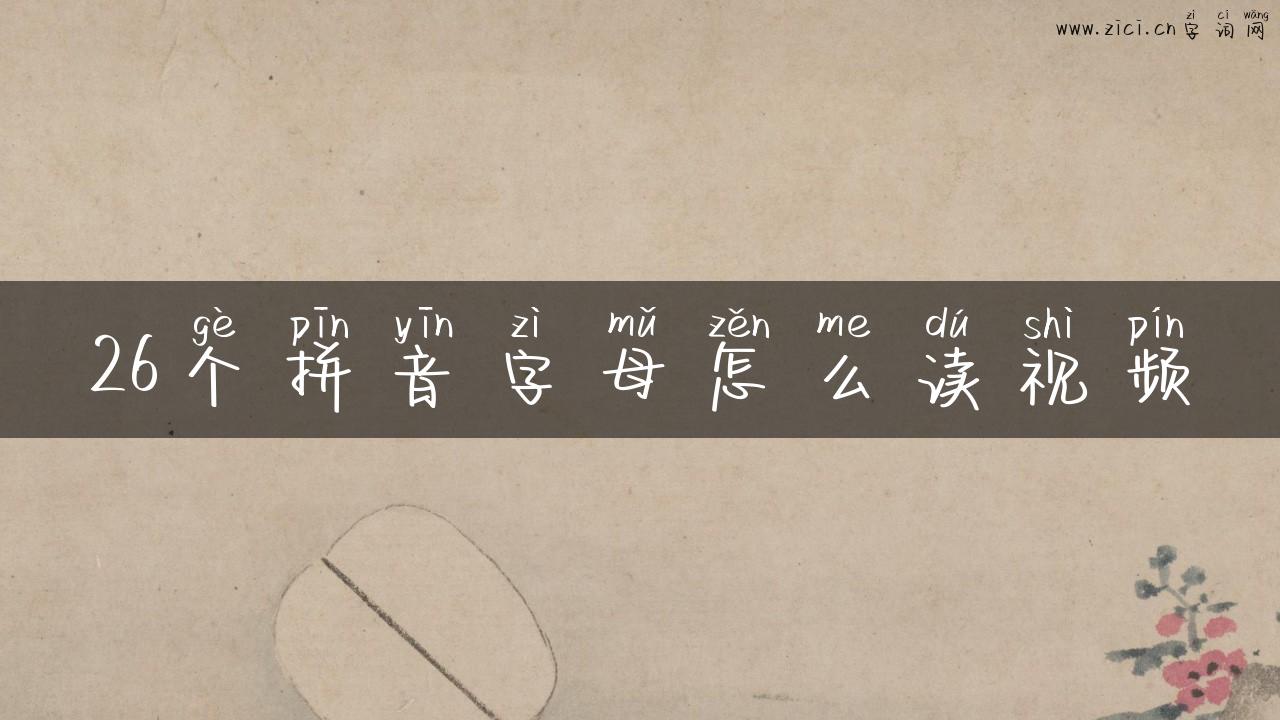 zì cí wǎng
www.zici.cn字词网
gè pīn yīn zì mǔ zěn me dú shì pín
26个拼音字母怎么读视频